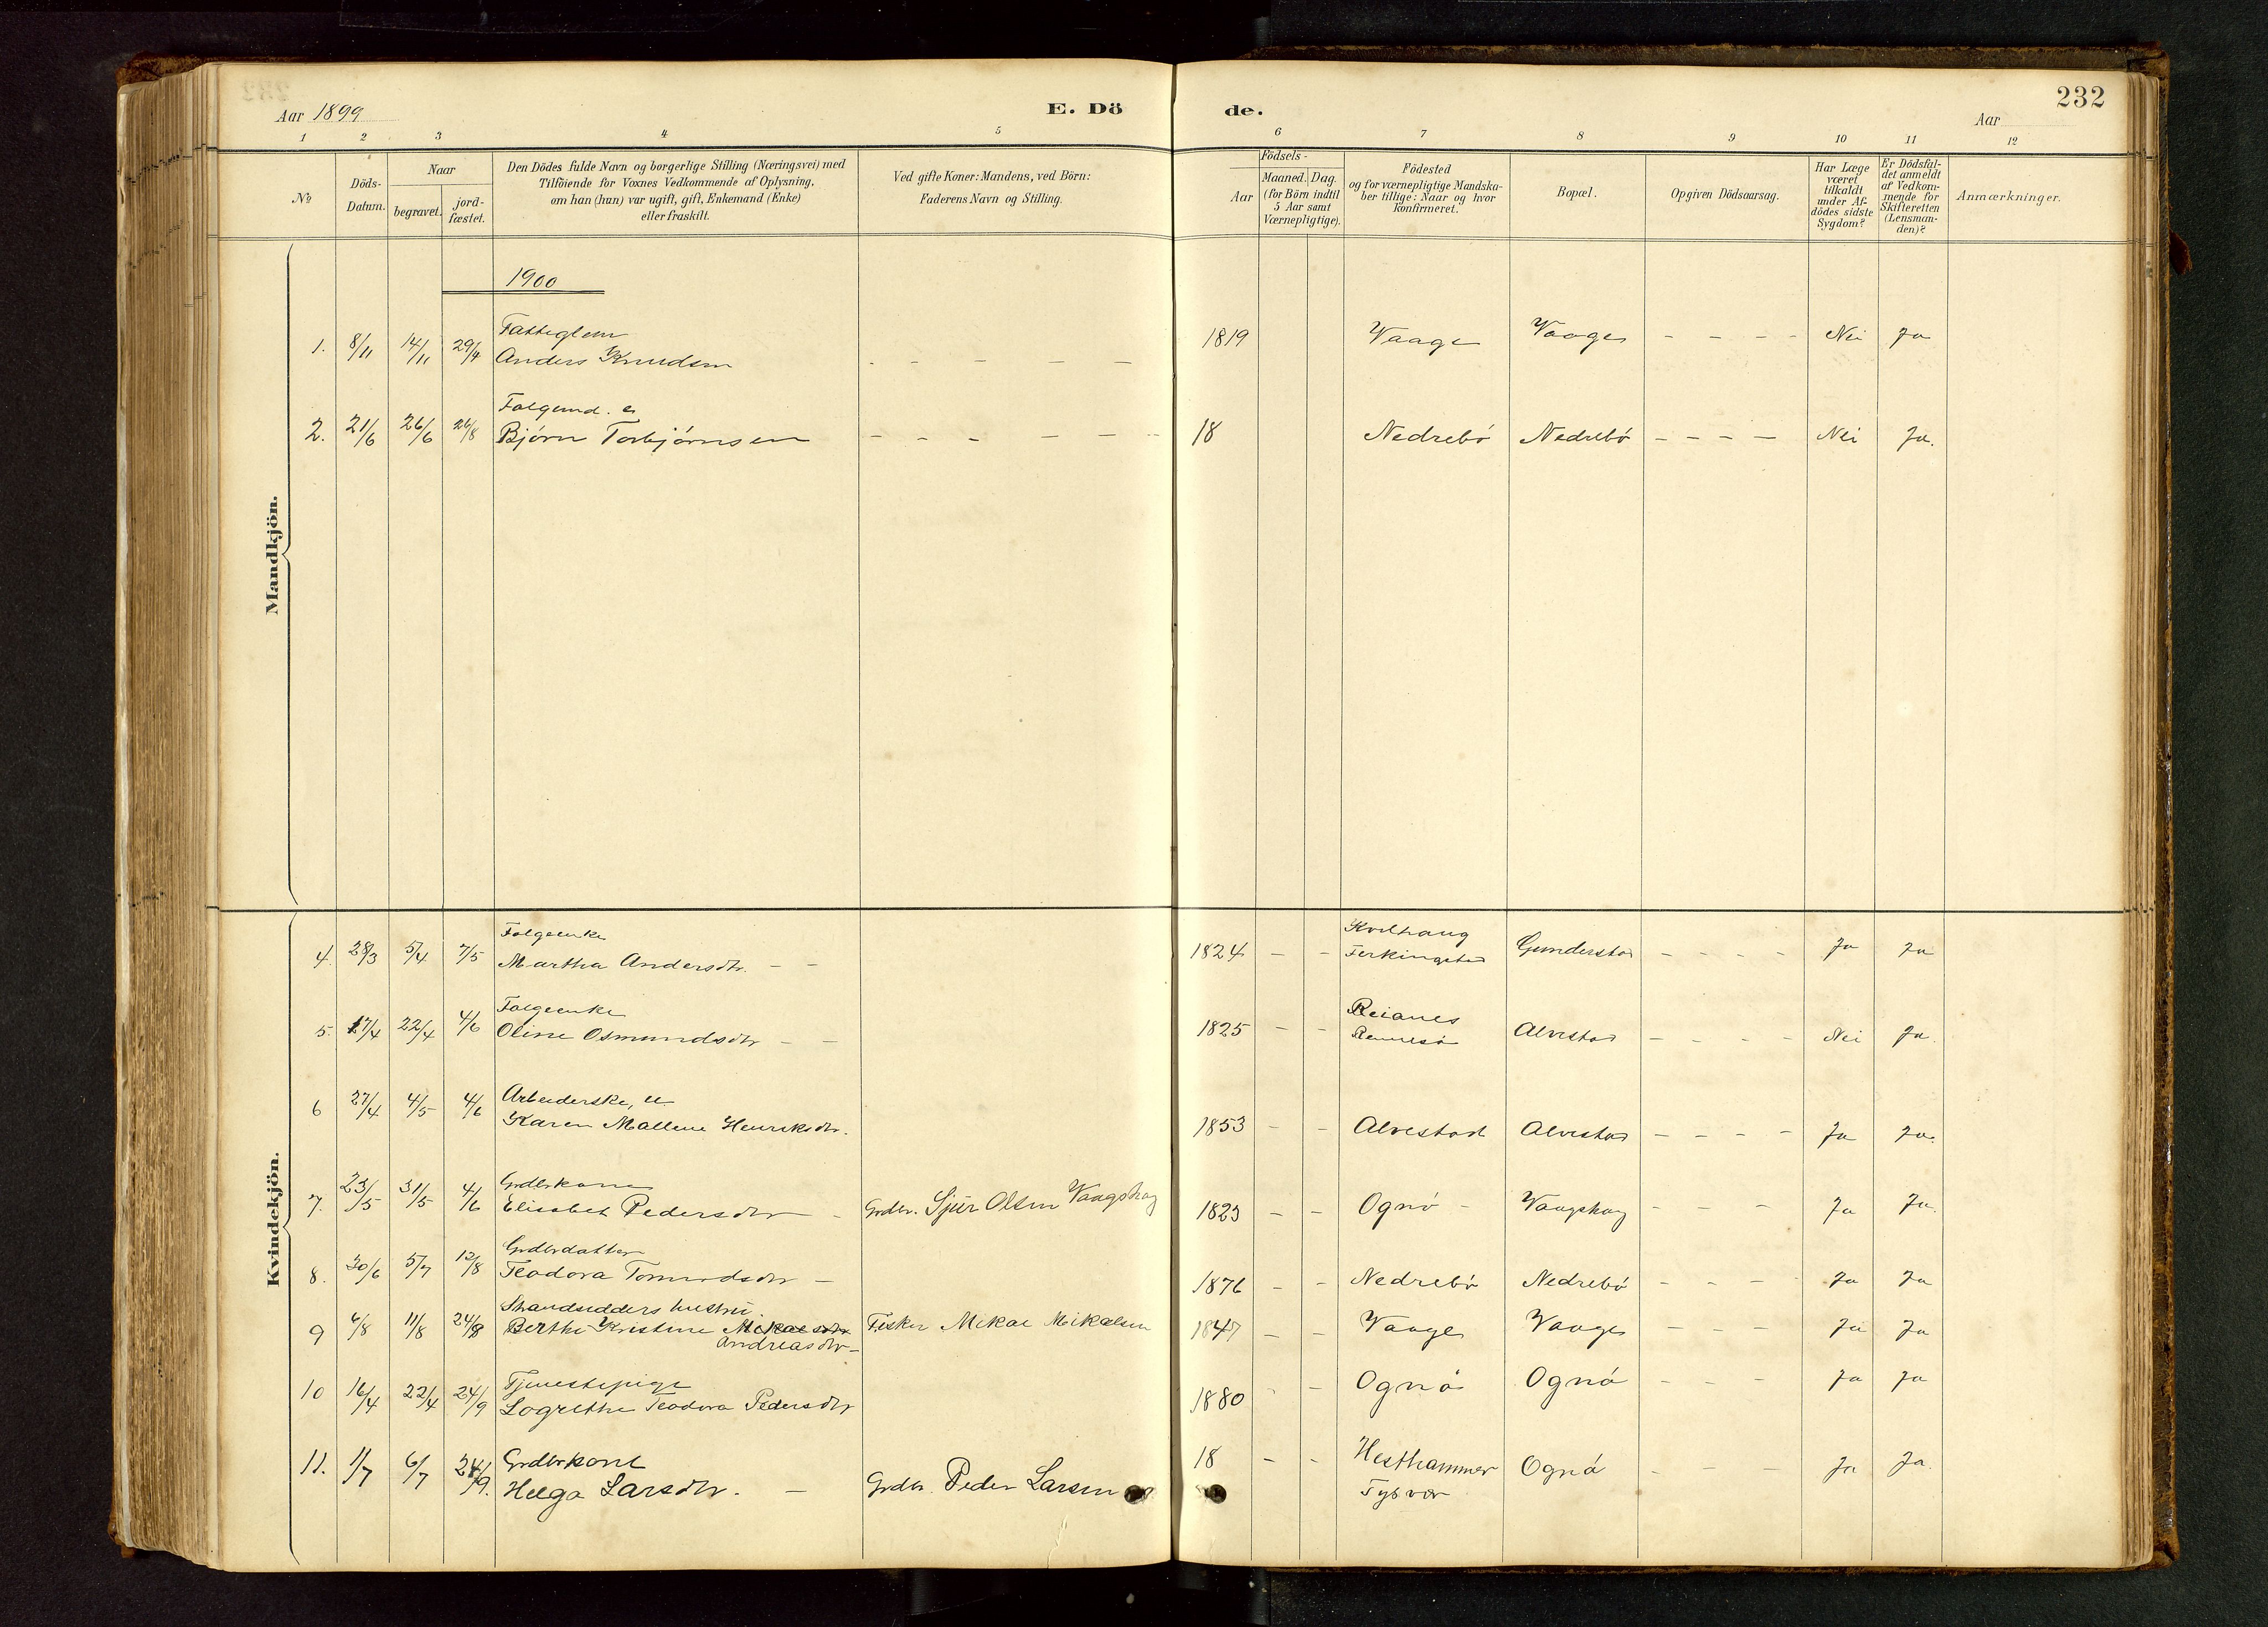 Aar 1899
E. Dö
de.
232
Aar
1 2 3 4 5 6 7 8 9 10 11 12
No
Döds-Datum.
Naar
begravet.
jord-fæstet.
Den Dödes fulde Navn og borgerlige Stilling (Næringsvei) med
Tilföiende for Voxnes Vedkommende af Oplysning,
om han (hun) var ugift, gift, Enkemand (Enke)
eller fraskilt.
Ved gifte Koner: Mandens, ved Börn:
Faderens Navn og Stilling.
Födsels-
Aar
Maaned. Dag.
(for Börn indtil
5 Aar samt
Værnepligtige).
Födested
og for værnepligtige Mandska-
ber tillige: Naar og hvor
konfirmeret.
Bopæl.
Opgiven Dödsaarsag.
Har Læge
været
tilkaldt
under Af-
dödes sidste
Sygdom?
Er Dödsfal-
det anmeldt
af Vedkom-
mende for
Skifteretten
(Lensman-
den)?
Anmærkninger.
Mandkjön.
1900
Fattiglem
1. 8/11 14/11 29/4 Anders Knudsen - - - - - 1819 Vaage Vaage - - - - Nei Ja
Folgemd. e
2. 21/6 26/6 26/8 Bjórn Torbjórnsen - - - - - 18 Nedrebó Nedrebó - - - - Nei Ja.
Kvindekjön.
Folgeenke Kvilhaug
4. 28/3 5/4 7/5 Martha Andersdtr. - - 1824 - - Ferkingstad Gunderstad - - - - Ja Ja
Folgeenke Reianes
5. 17/4 22/4 4/6 Oline Osmundsdtr - - 1825 - - Rennesö Alvestad - - - - Nei Ja.
Arbeiderske, u.
6 27/4 4/5 4/6 Karen Mallene Henriksdtr. 1853 - - Alvestad Alvestad - - - - Ja Ja.
Grdbrkone
7. 23/5 31/5 4/6 Elisabet Pedersdtr - Grdbr. Sjur Olsen Vaagshaug 1823 - - Ognó - Vaagshaug - - - Ja Ja.
Grdbrdatter
8. 30/6 5/7 12/8 Teodora Tormodsdtr - 1876 - - Nedrebó Nedrebó - - - Ja Ja
Strandsidders hustru.
9 6/8 11/8 24/8 Berthe Kristine Mikalsdtr Fisker Mikal Mikalsen 1847 - - Vaage Vaage - - - Ja Ja
Andreasdtr -
Tjenestepige
10 16/4 22/4 24/9 Logrethe Teodora Pedersdtr 1880 - - Ognó Ognó - - - Ja Ja
Grdbrkone
11. 1/7 6/7 24/9. Helga Larsdtr. - Grdbr. Peder Larsen 18 - - Hesthammer Ognó - - - Ja Ja.
Tysvær